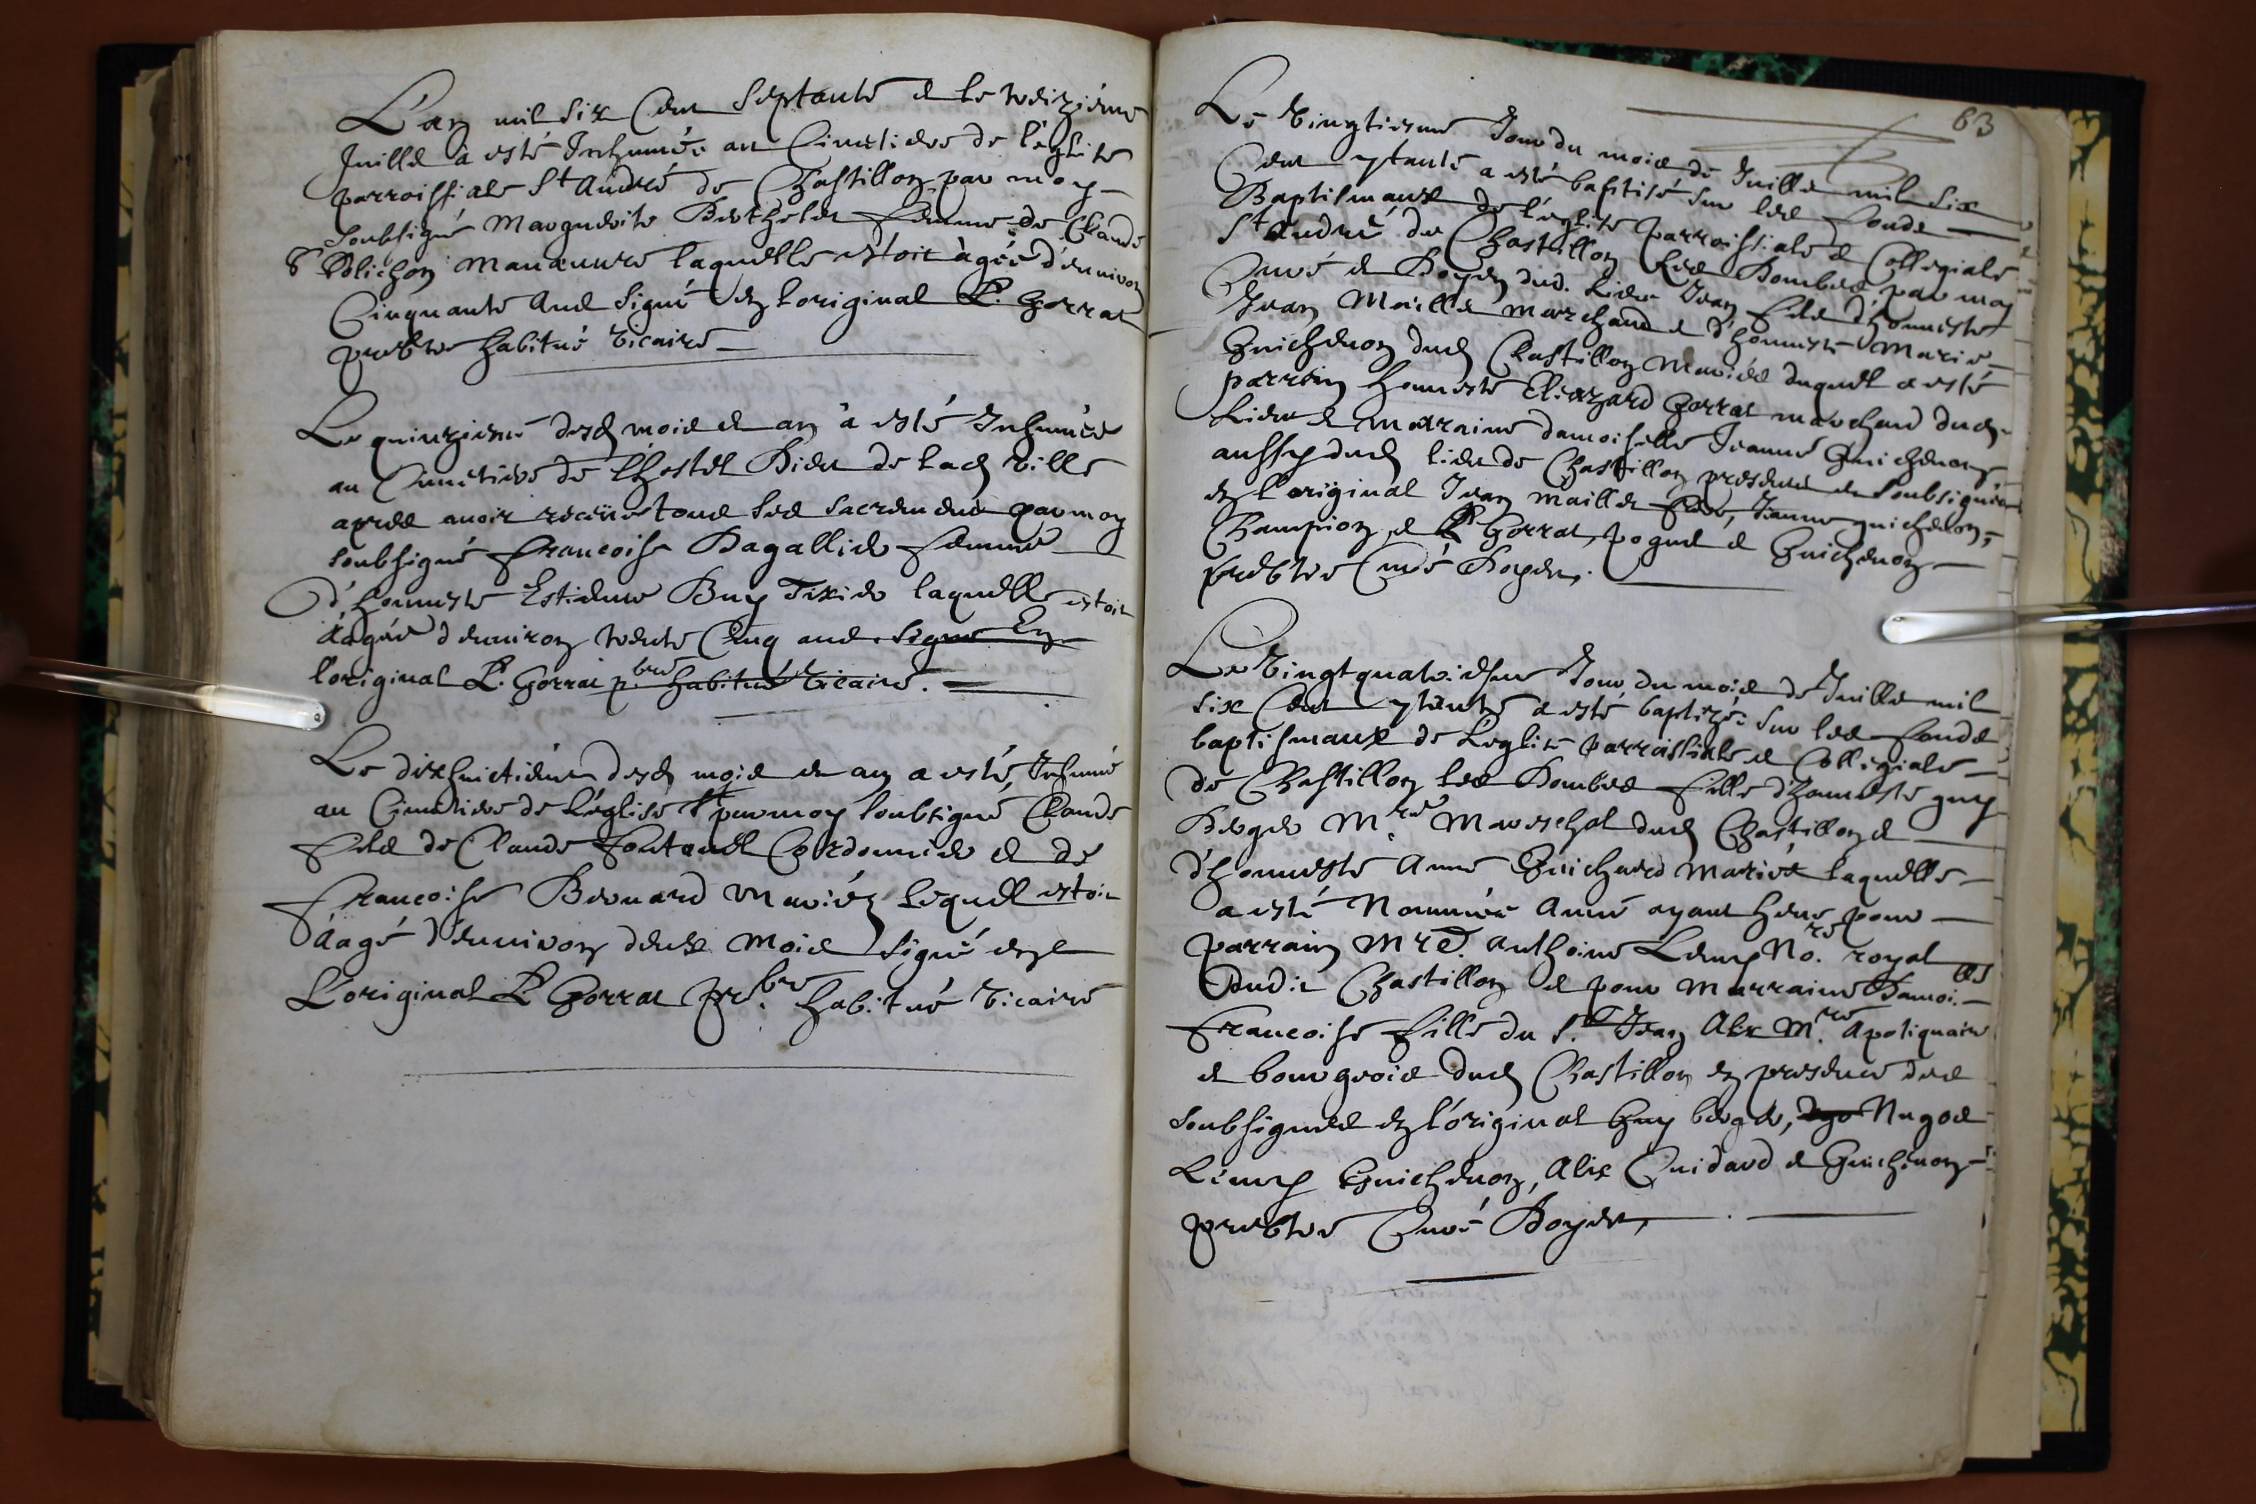 L'an mil six Cent Septante et le treiziéme
Juillet à esté Inhumée au Cimetiere de l'église
parroissiale St André de Chastillon par moy
soubsigné Marguerite Berthelet femme de Claude
Polichon Manœuvre laquelle estoit agée d'environ
Cinquante Ans Signé En loriginal P. Gorrat
prebtre habitué vicaire
Le quinziesme desd mois et an à esté Inhumée
au Cimetiere de lhostel Dieu de lad ville
apres avoir receüe tous les sacremens par moy
soubsigné francoise Dagallier femme
d'honneste Estienne Buy Tixier laquelle estoit
aagée d'environ trente Cinq ans. Signé En
l'original P. Gorrat pbre habitué vicaire.
Le dixhuictiéme desd mois et an a esté Inhumé
au Cimetiere de l'église par moy soubsigné Claude
fils de Claude Cordonnier et de
francoise Bernard Mariéz lequel estoit
aagé d'environ deux Mois signé en
L'original P Gorrat prebre habitué vicaire
63
Le vingtiesme Jour du mois de Juillet mil six
Cent ptante a esté baptisé sur les fonds
Baptismaux de l'eglise parroissiale et Collegiale
St André de Chastillon les Dombes par moy
Curé et Doyen dud. Lieu Jean fils d'honneste
Jean Maillet marchand et d'honneste Marie
Guichenon dud Chastillon Mariés duquel a esté
parrein honneste Eleazard Gorrat marchand dud
Lieu et marraine damoiselle Jeanne Guichenon
aussy dud lieu de Chastillon presens et soubsignés
en l'original Jean Maillet, Jeanne guichenon,
Champion et P Gorrat, poguet et Guichenon
prebtre Curé Doyen.
Le vingtquatriesme Jour du mois de Juillet mil
six Cent ptante a esté baptizé sur les fonds
baptismaux de l'eglise parroissiale et Collegiale
de Chastillon les Dombes fille d'honneste guy
Berger M.re Mareschal dud Chastillon et
d'honneste Anne Guichard Mariés laquelle
a esté Nommée Anne ayant heue pour
parrain Mre. Anthoine Lemp No.re royal
dudit Chastillon et pour Marraine Damoi.lle
francoise fille du S.r Jean Alix M.re Apotiquaire
et bourgeois dud Chastillon en presence des
soubsignés en l'original Guy berger, Nugos
Lemp Guichenon, Alix Cuidard et Guichenon
prebtre Curé Doyen,